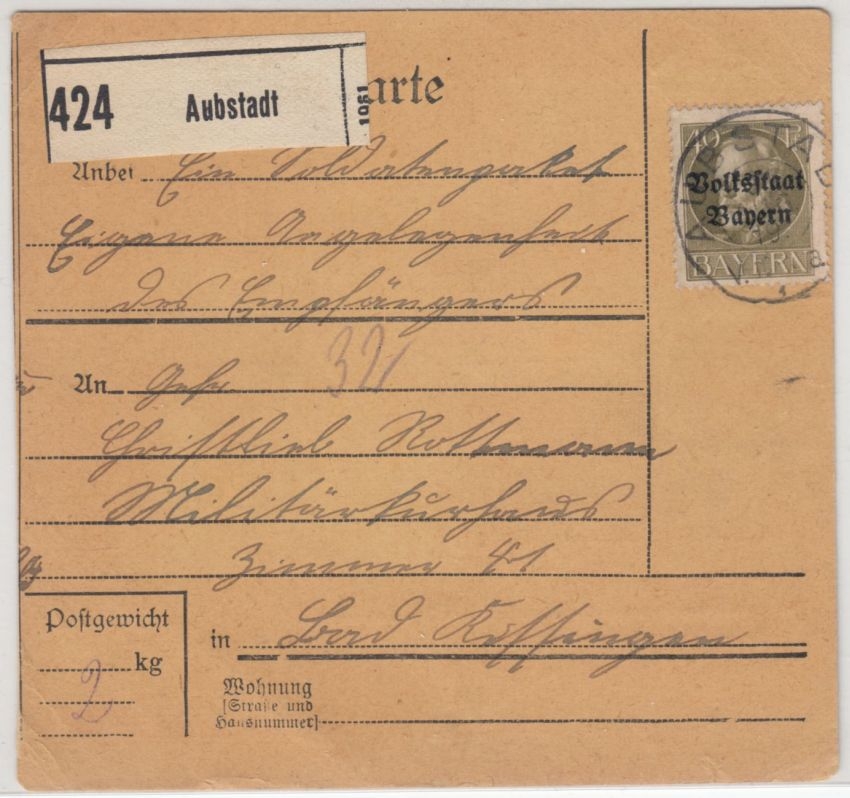 424 Aubstadt 1961
arte
Anbei Ein Soldatenpaket
Eigene Angelegenheit
des Empfängers
321
An Gefr.
Christlieb Rottmann
Militärkurhaus
Zimmer 41
in Bad Kissingen
Postgewicht
kg
2
Wohnung
[Straße und
Hausnummer]
40 Pf
Volksstaat
Bayern
BAYERN
AUBSTAD